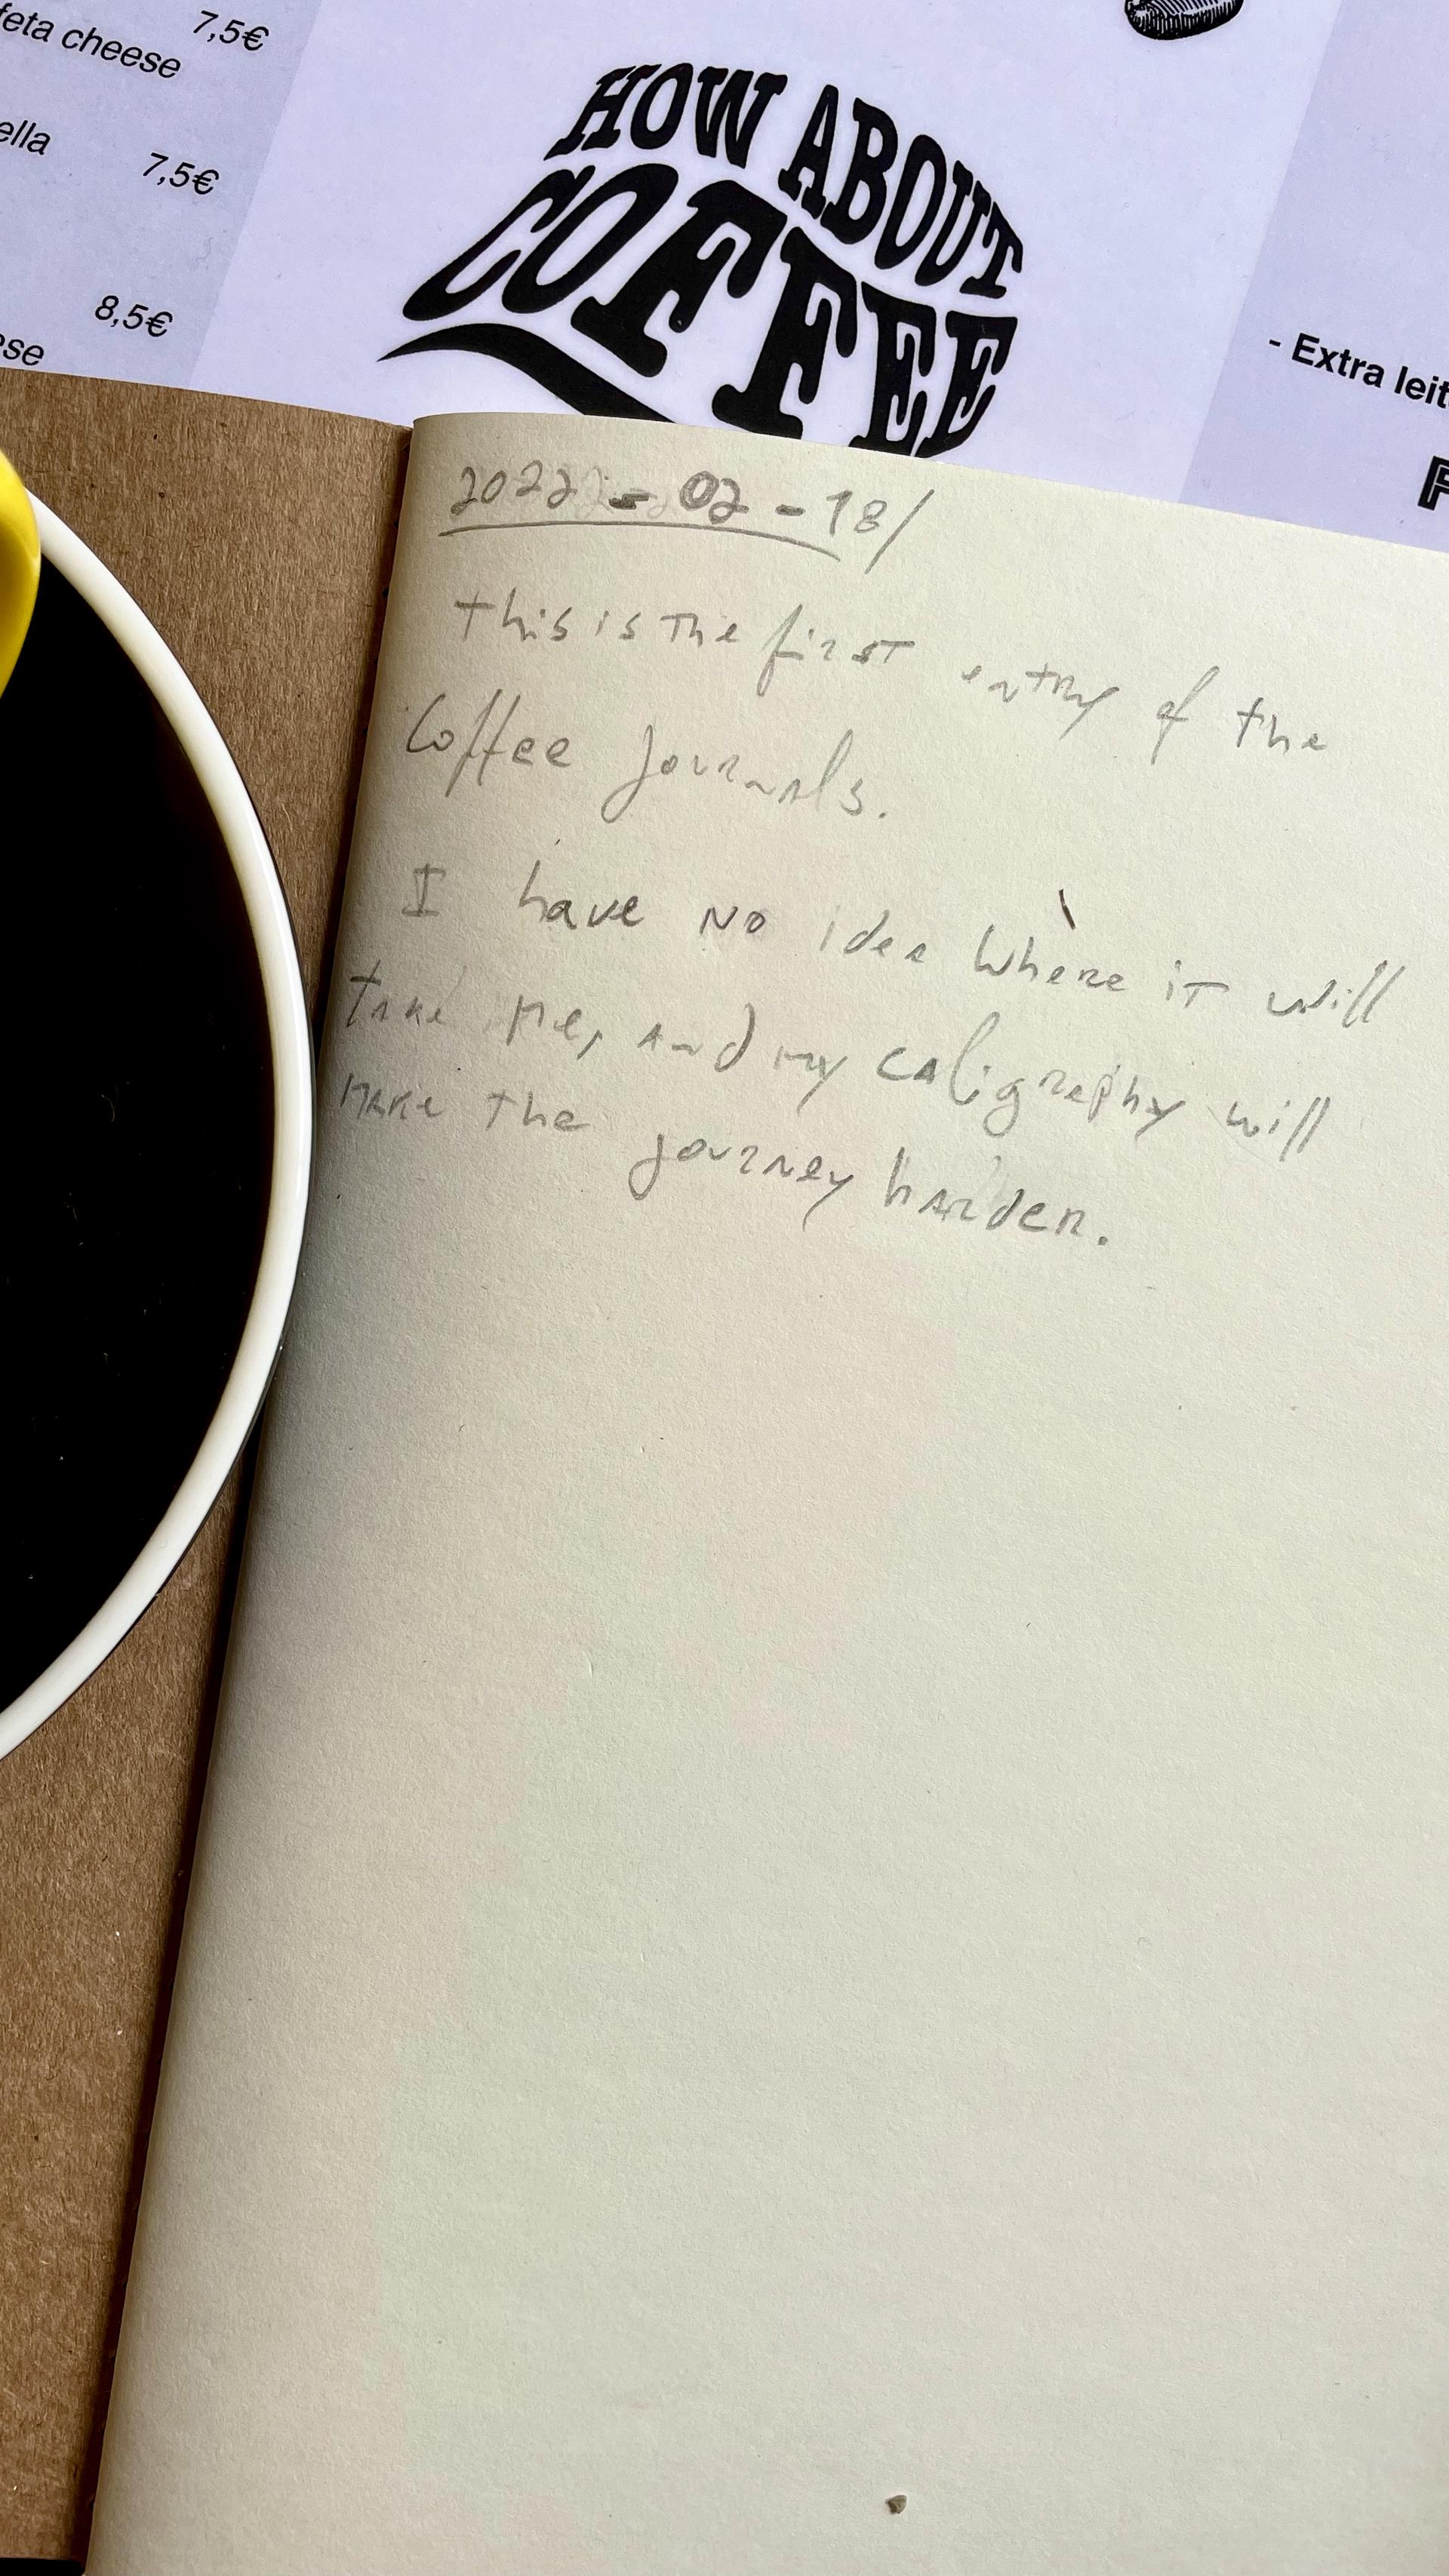 7,5€
feta cheese
ella
7,5€
8,5€
HOW ABOUT
COFFEE
- Extra leit
2022-02-18/
this is the first entry of the
Coffee journals.
I have no idea where it will
take me, and my caligraphy will
make the journey harder.